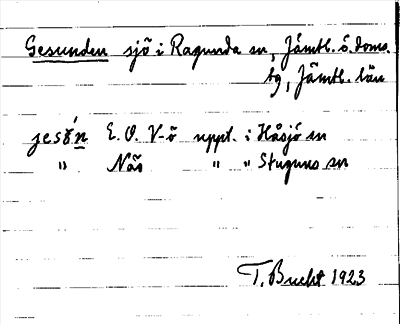 Gesunden sjö i Ragunda sn, Jämtl. ö. doms.
tg, Jämtl. län
jesún E. O. V-ö uppt. i Håsjö sn
" Näs " " Stuguns sn
T. Bucht 1923